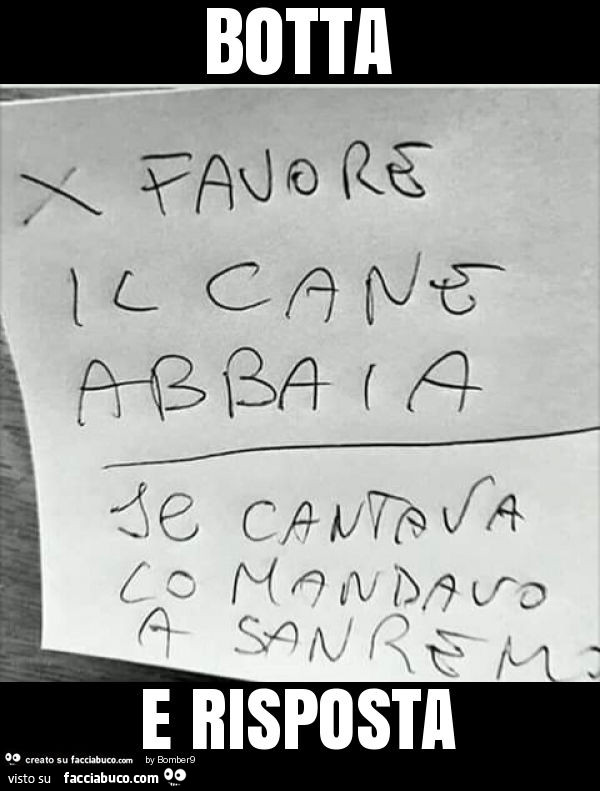 BOTTA
X FAVORE
IL CANE
ABBAIA
SE CANTAVA
LO MANDAVO
A SANREMO
E RISPOSTA
creato su facciabuco.com by Bomber9
visto su facciabuco.com